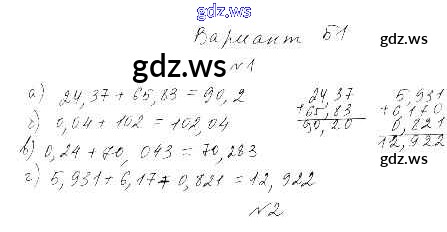 gdz.ws
Вариант Б1
gdz.ws
gdz.ws
№1
а) 24,37 + 65,83 = 90,2
б) 0,04 + 102 = 102,04
в) 0,24 + 70, 043 = 70,283
г) 5,931 + 6,17 + 0,821 = 12, 922
24,37
+65,83
90,20
5,931
+6,170
0,821
12,922
gdz.ws
№2